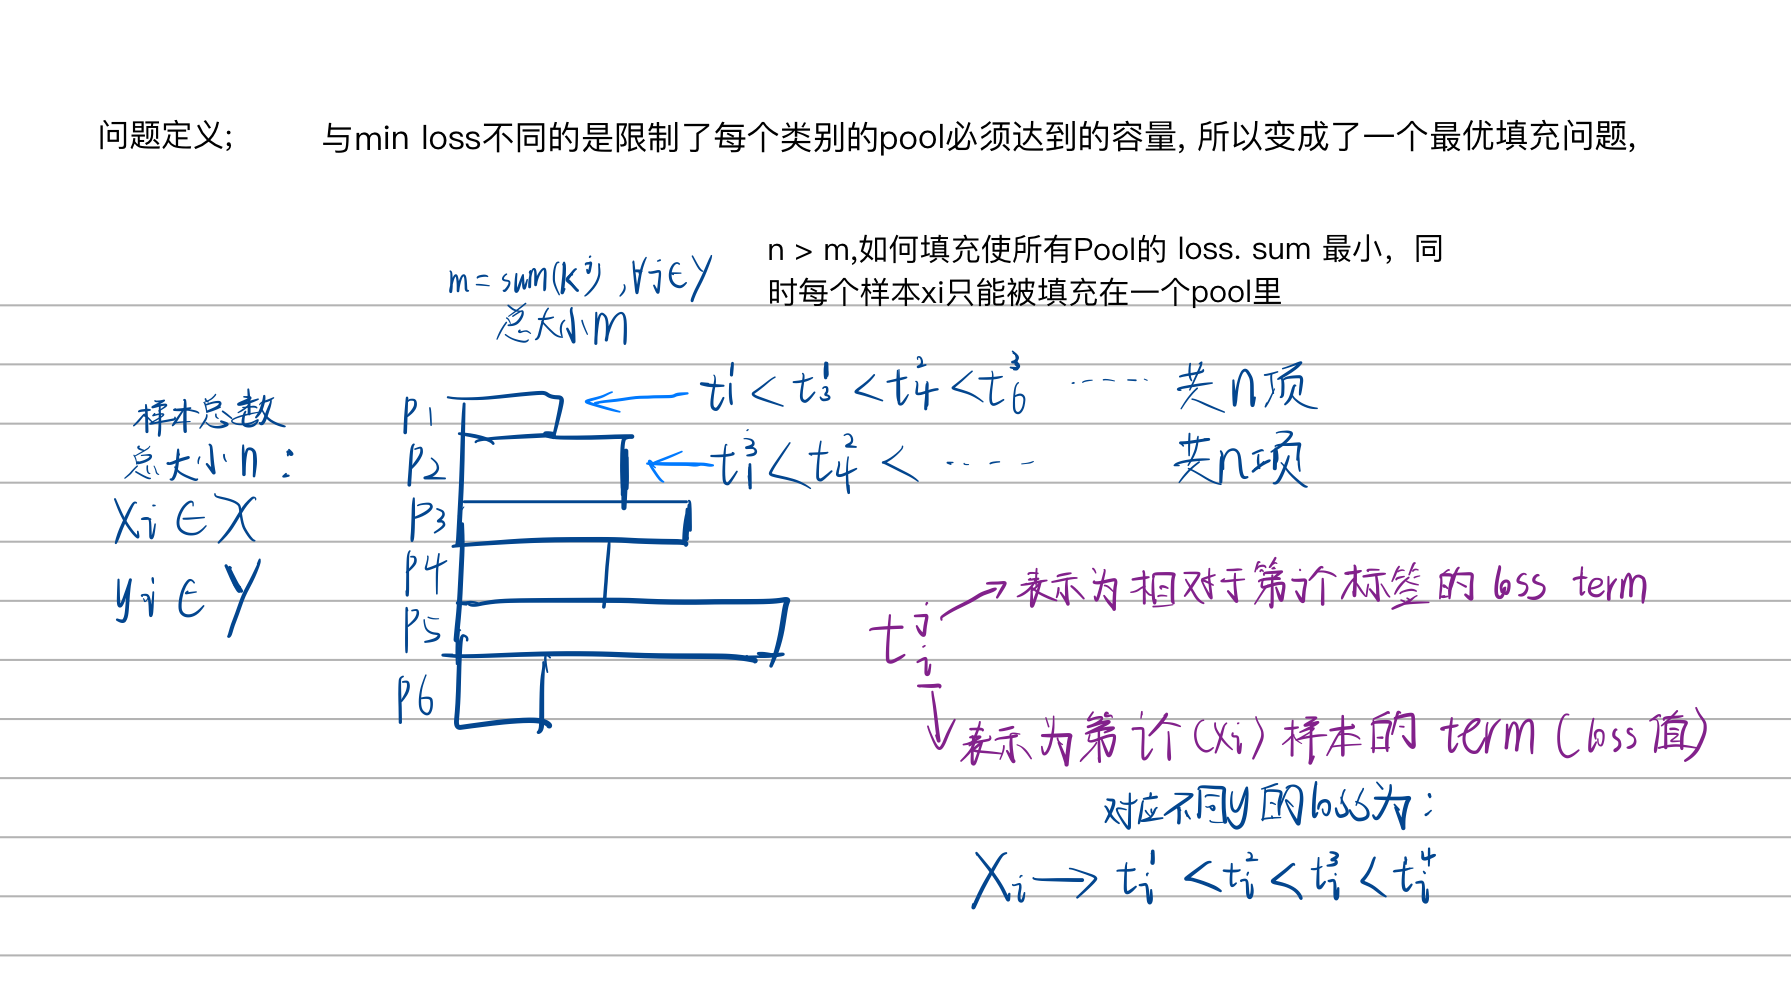 问题定义;
与min loss不同的是限制了每个类别的pool必须达到的容量, 所以变成了一个最优填充问题,
n > m,如何填充使所有Pool的 loss. sum 最小，同
时每个样本xi只能被填充在一个pool里
m = sum(k^j) , ∀j∈Y
总大小m
样本总数
总大小n：
Xi ∈ X
yi ∈ Y
P1
P2
P3
P4
P5
P6
t_1^1 < t_3^1 < t_4^2 < t_6^3 ...... 共n项
t_1^3 < t_4^2 < ..... 共n项
t_i^j
表示为相对于第j个标签的loss term
表示为第i个(xi)样本的 term (loss值)
对应不同y的loss为：
Xi → t_i^1 < t_i^2 < t_i^3 < t_i^4